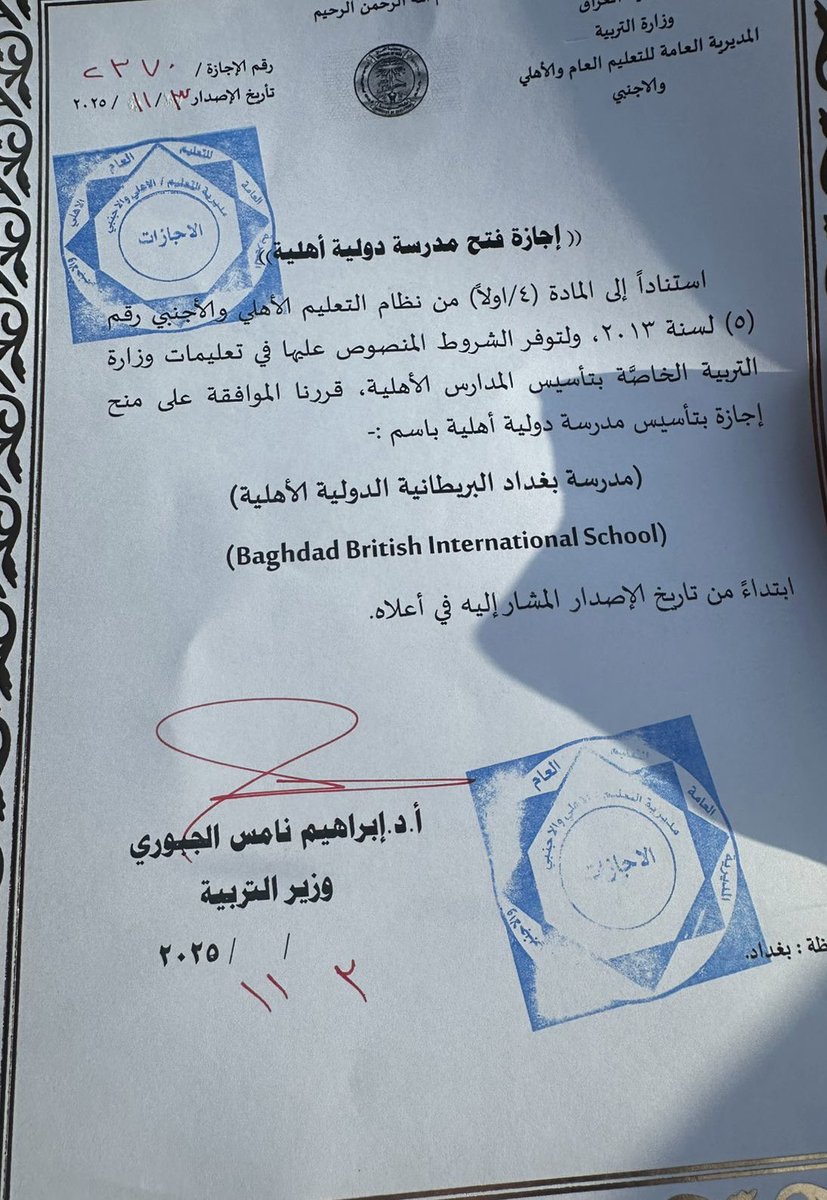 الرحمن الرحيم
وزارة التربية
المديرية العامة للتعليم العام والأهلي
والاجنبي
رقم الإجازة / ٢٣٧٠
تأريخ الإصدار ٣ / ١١ / ٢٠٢٥
العام للتعليم
العامة
مديرية التعليم / الاهلي والاجنبي
الاجازات
(( إجازة فتح مدرسة دولية أهلية ))
استناداً إلى المادة (٤/اولاً) من نظام التعليم الأهلي والأجنبي رقم
(٥) لسنة ٢٠١٣، ولتوفر الشروط المنصوص عليها في تعليمات وزارة
التربية الخاصَّة بتأسيس المدارس الأهلية، قررنا الموافقة على منح
إجازة بتأسيس مدرسة دولية أهلية باسم :-
(مدرسة بغداد البريطانية الدولية الأهلية)
(Baghdad British International School)
ابتداءً من تاريخ الإصدار المشار إليه في أعلاه.
أ.د.إبراهيم نامس الجبوري
وزير التربية
/ / ٢٠٢٥
١١ ٣
العام
العامة
المديرية
مديرية التعليم الاهلي والاجنبي
الاجازات
والاجنبي
: بغداد.